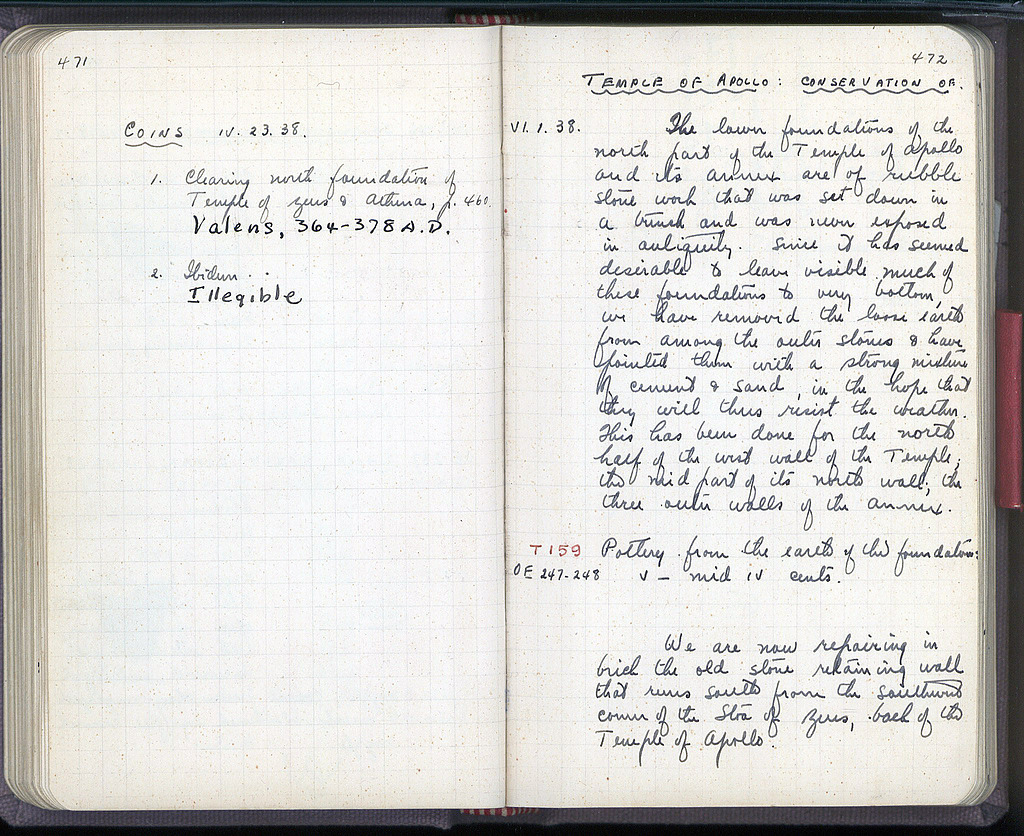 471
COINS IV. 23. 38.
1. Clearing north foundation of
Temple of Zeus & Athena, p. 460.
Valens, 364-378 A.D.
2. Ibidem.
Illegible
472
TEMPLE OF APOLLO: CONSERVATION OF.
VI. 1. 38. The lower foundations of the
north part of the Temple of Apollo
and its annex are of rubble
stone work that was set down in
a trench and was never exposed
in antiquity. Since it has seemed
desirable to leave visible much of
these foundations to very bottom,
we have removed the loose earth
from among the outer stones & have
pointed them with a strong mixture
of cement & sand, in the hope that
they will thus resist the weather.
This has been done for the north
half of the west wall of the Temple;
the mid part of its north wall; the
three outer walls of the annex.
T 159 Pottery from the earth of the foundations:
OE 247-248 V - mid IV cents.
We are now repairing in
brick the old stone retaining wall
that runs south from the southwest
corner of the Stoa of Zeus, back of the
Temple of Apollo.